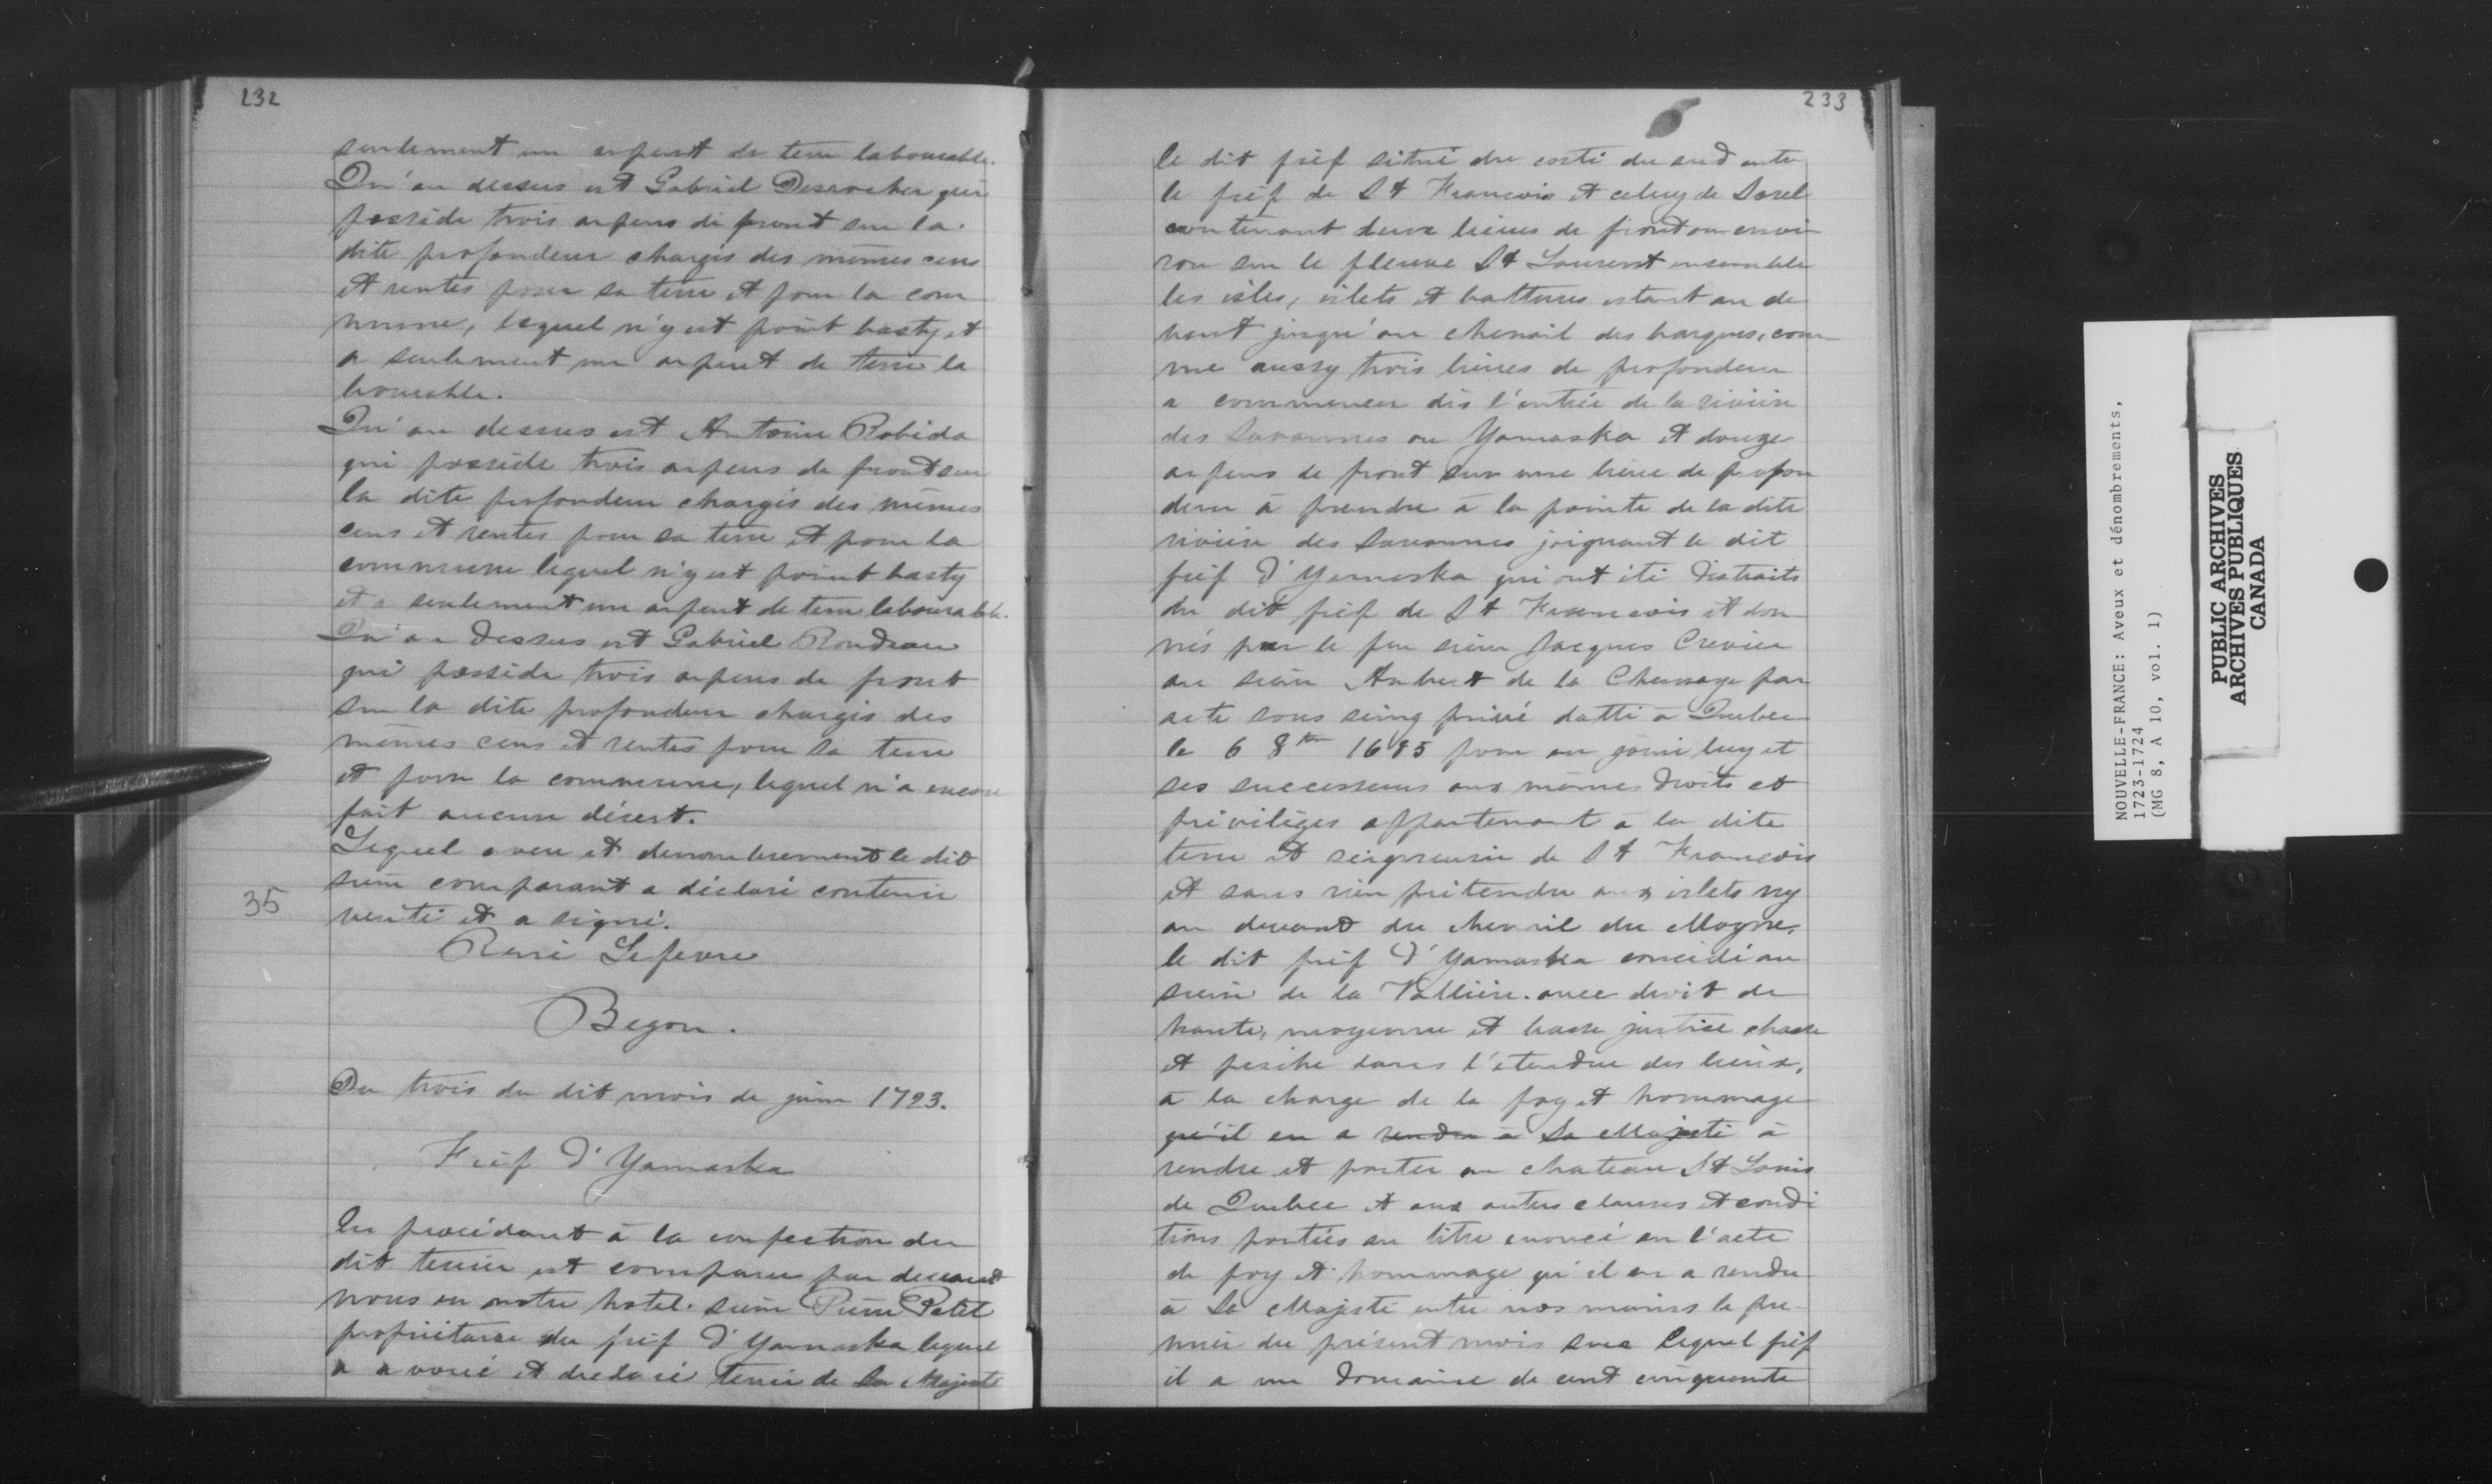 232
seulement un arpent de terre labourable.
Qu'au dessus est Gabriel Desrocher qui
possède trois arpens de front sur la
dite profondeur chargés des mêmes cens
et rentes pour sa terre et pour la com
mune, lequel n'y est point basty et
a seulement un arpent de terre la
bourable.
Qu'au dessus est Antoine Robida
qui possède trois arpens de front sur
la dite profondeur chargés des mêmes
cens et rentes pour sa terre et pour la
commune lequel n'y est point basty
et a seulement un arpent de terre labourable.
Qu'au dessus est Gabriel Rondeau
qui possède trois arpens de front
sur la dite profondeur chargés des
mêmes cens et rentes pour sa terre
et pour la commune, lequel n'a encore
fait aucun désert.
Lequel aveu et denombrement le dit
sieur comparant a déclaré contenir
verité et a signé.
35
René Lefevre
Begon.
Du trois du dit mois de juin 1723.
Fief d'Yamaska
En procédant à la confection du
dit terrier est comparu par devant
nous en nostre hotel. sieur Pierre Petit
propriétaire du fief d'Yamaska lequel
a avoué et declaré tenir de Sa Majesté
233
le dit fief situé du costé du sud entre
le fief de St Francois et celuy de Sorel
contenant deux lieues de front ou envi
ron sur le fleuve St Laurent ensemble
les isles, islets et battures estant au de
vant jusqu'au chenail des barques, com-
me aussy trois lieues de profondeur
a commencer dès l'entrée de la rivière
des Savannes ou Yamaska et douze
arpens de front sur une lieue de profon
deur à prendre à la pointe de la dite
rivière des Savannes joignant le dit
fief d'Yamaska qui ont été distraits
du dit fief de St Francois et don-
nés par le feu sieur Jacques Crevier
au sieur Aubert de la Chesnaye par
acte sous seing privé datté à Quebec
le 6 8bre 1685 pour en jouir luy et
ses successeurs aux mêmes droits et
privilèges appartenant à la dite
terre et seigneurie de St Francois
et sans rien prétendre aux islets ny
au devant du chenail du Moyne.
le dit fief d'Yamaska concédé au
sieur de la Vallière. avec droit de
haute, moyenne et basse justice chasse
et pesche dans l'etendue des lieux,
à la charge de la foy et hommage
qu'il en a rendu à Sa Majesté à
rendre et porter au chateau St Louis
de Quebec et aux autres clauses et condi
tions portées au titre enoncé en l'acte
de foy et hommage qu'il en a rendu
à Sa Majesté entre nos mains le pre-
mier du présent mois sur lequel fief
il a un domaine de cent cinquante
NOUVELLE-FRANCE: Aveux et dénombrements,
1723-1724
(MG 8, A 10, vol. 1)
PUBLIC ARCHIVES
ARCHIVES PUBLIQUES
CANADA